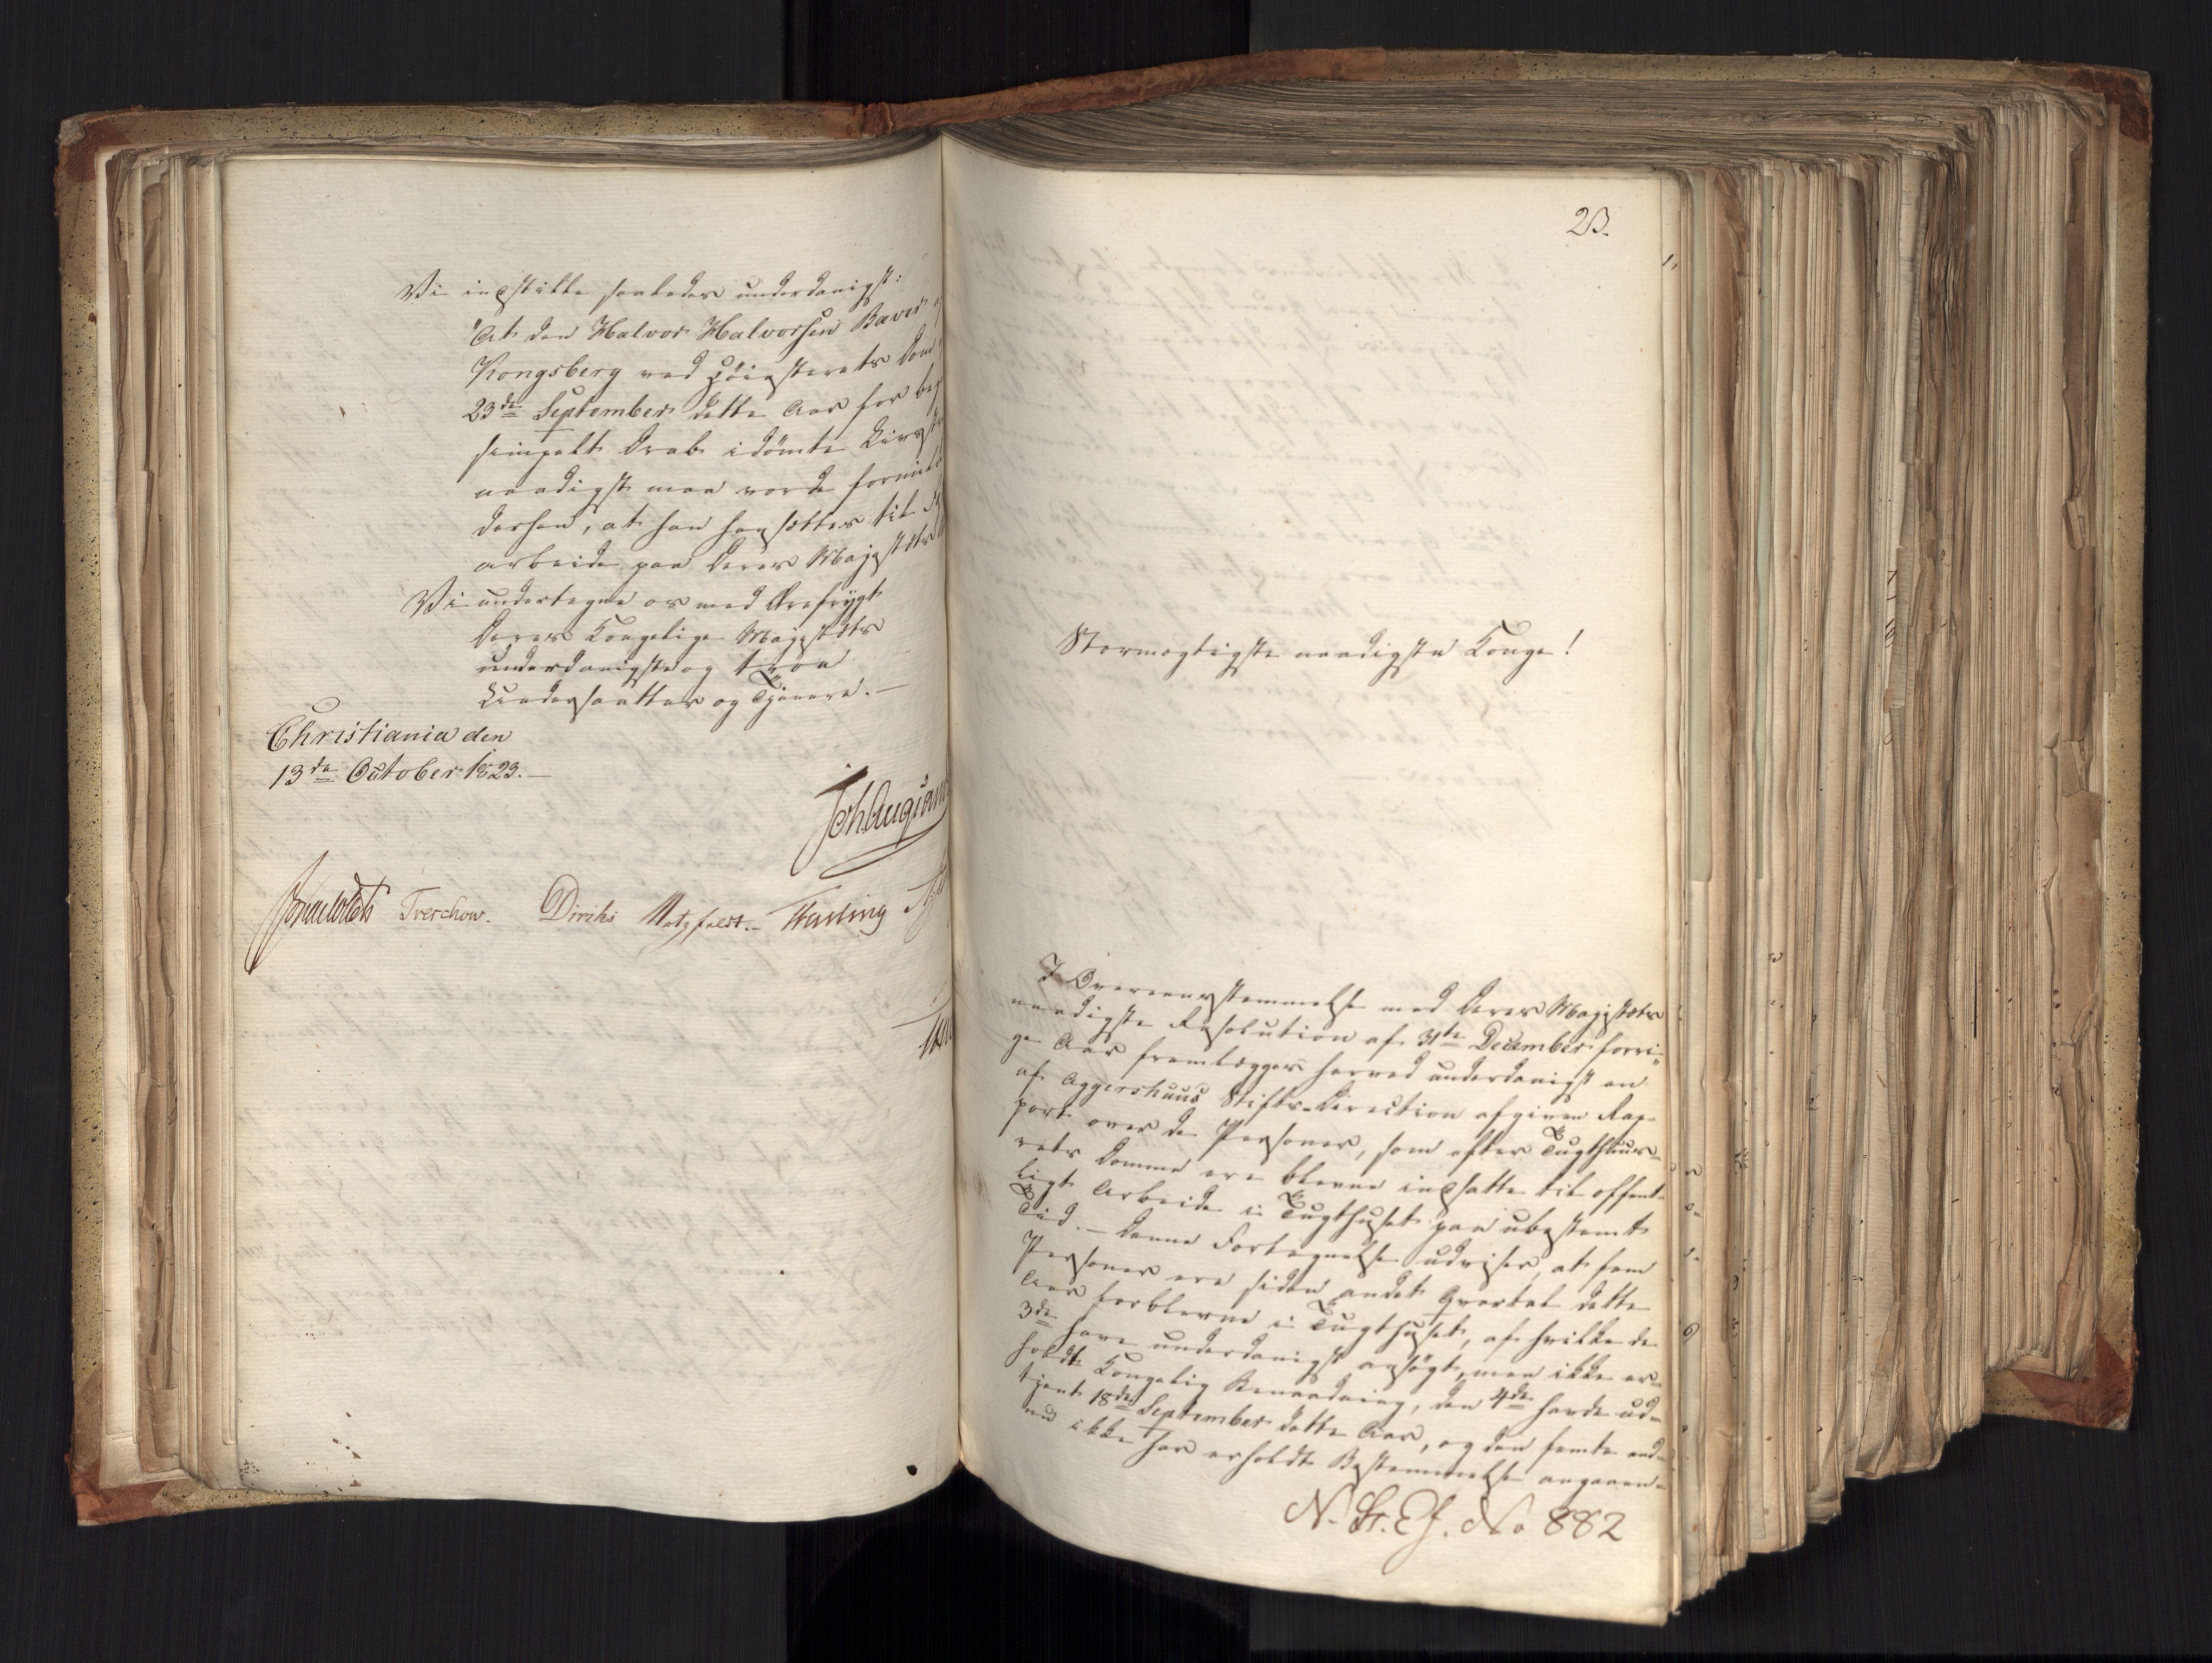 Vi indstille saaledes underdanigst:
At den Halvor Halvorsen Baver
Kongsberg ved Høiesterets Dom
23de September dette Aar for
simpelt Drab idømte Livs
naadigst maa vorde formil
derhen, at han hensættes til
arbeide paa Deres Majestæts
Vi undertegne os med Ærefrygt
Deres Kongelige Majestæts
underdanigste og troe
Undersaatter og Tjenere. —
Christiania den
13de October 1823. —
Treschow. Diriks Motzfeldt. Fasting
23.
Stormægtigste naadigste Konge!
I Overeensstemmelse med Deres Majestæts
naadigste Resolution af 31te December forri-
ge Aar fremlægges herved underdanigst en
af Aggershuus Stifts-Direction afgiven Rap-
port over de Personer, som efter Tugthuus-
rets Domme ere blevne indsatte til offent-
ligt Arbeide i Tugthuset paa ubestemt
Tid. — Denne Fortegnelse udviser, at fem
Personer ere siden andet Qvartal dette
Aar forblevne i Tugthuset, af hvilke de
3de have underdanigst ansøgt, men ikke er-
holdt Kongelig Benaadning, den 4de havde ud-
tjent 18de September dette Aar, og den femte end-
nu ikke har erholdt Bestemmelse angaaen-
N. St. Ex. No 882